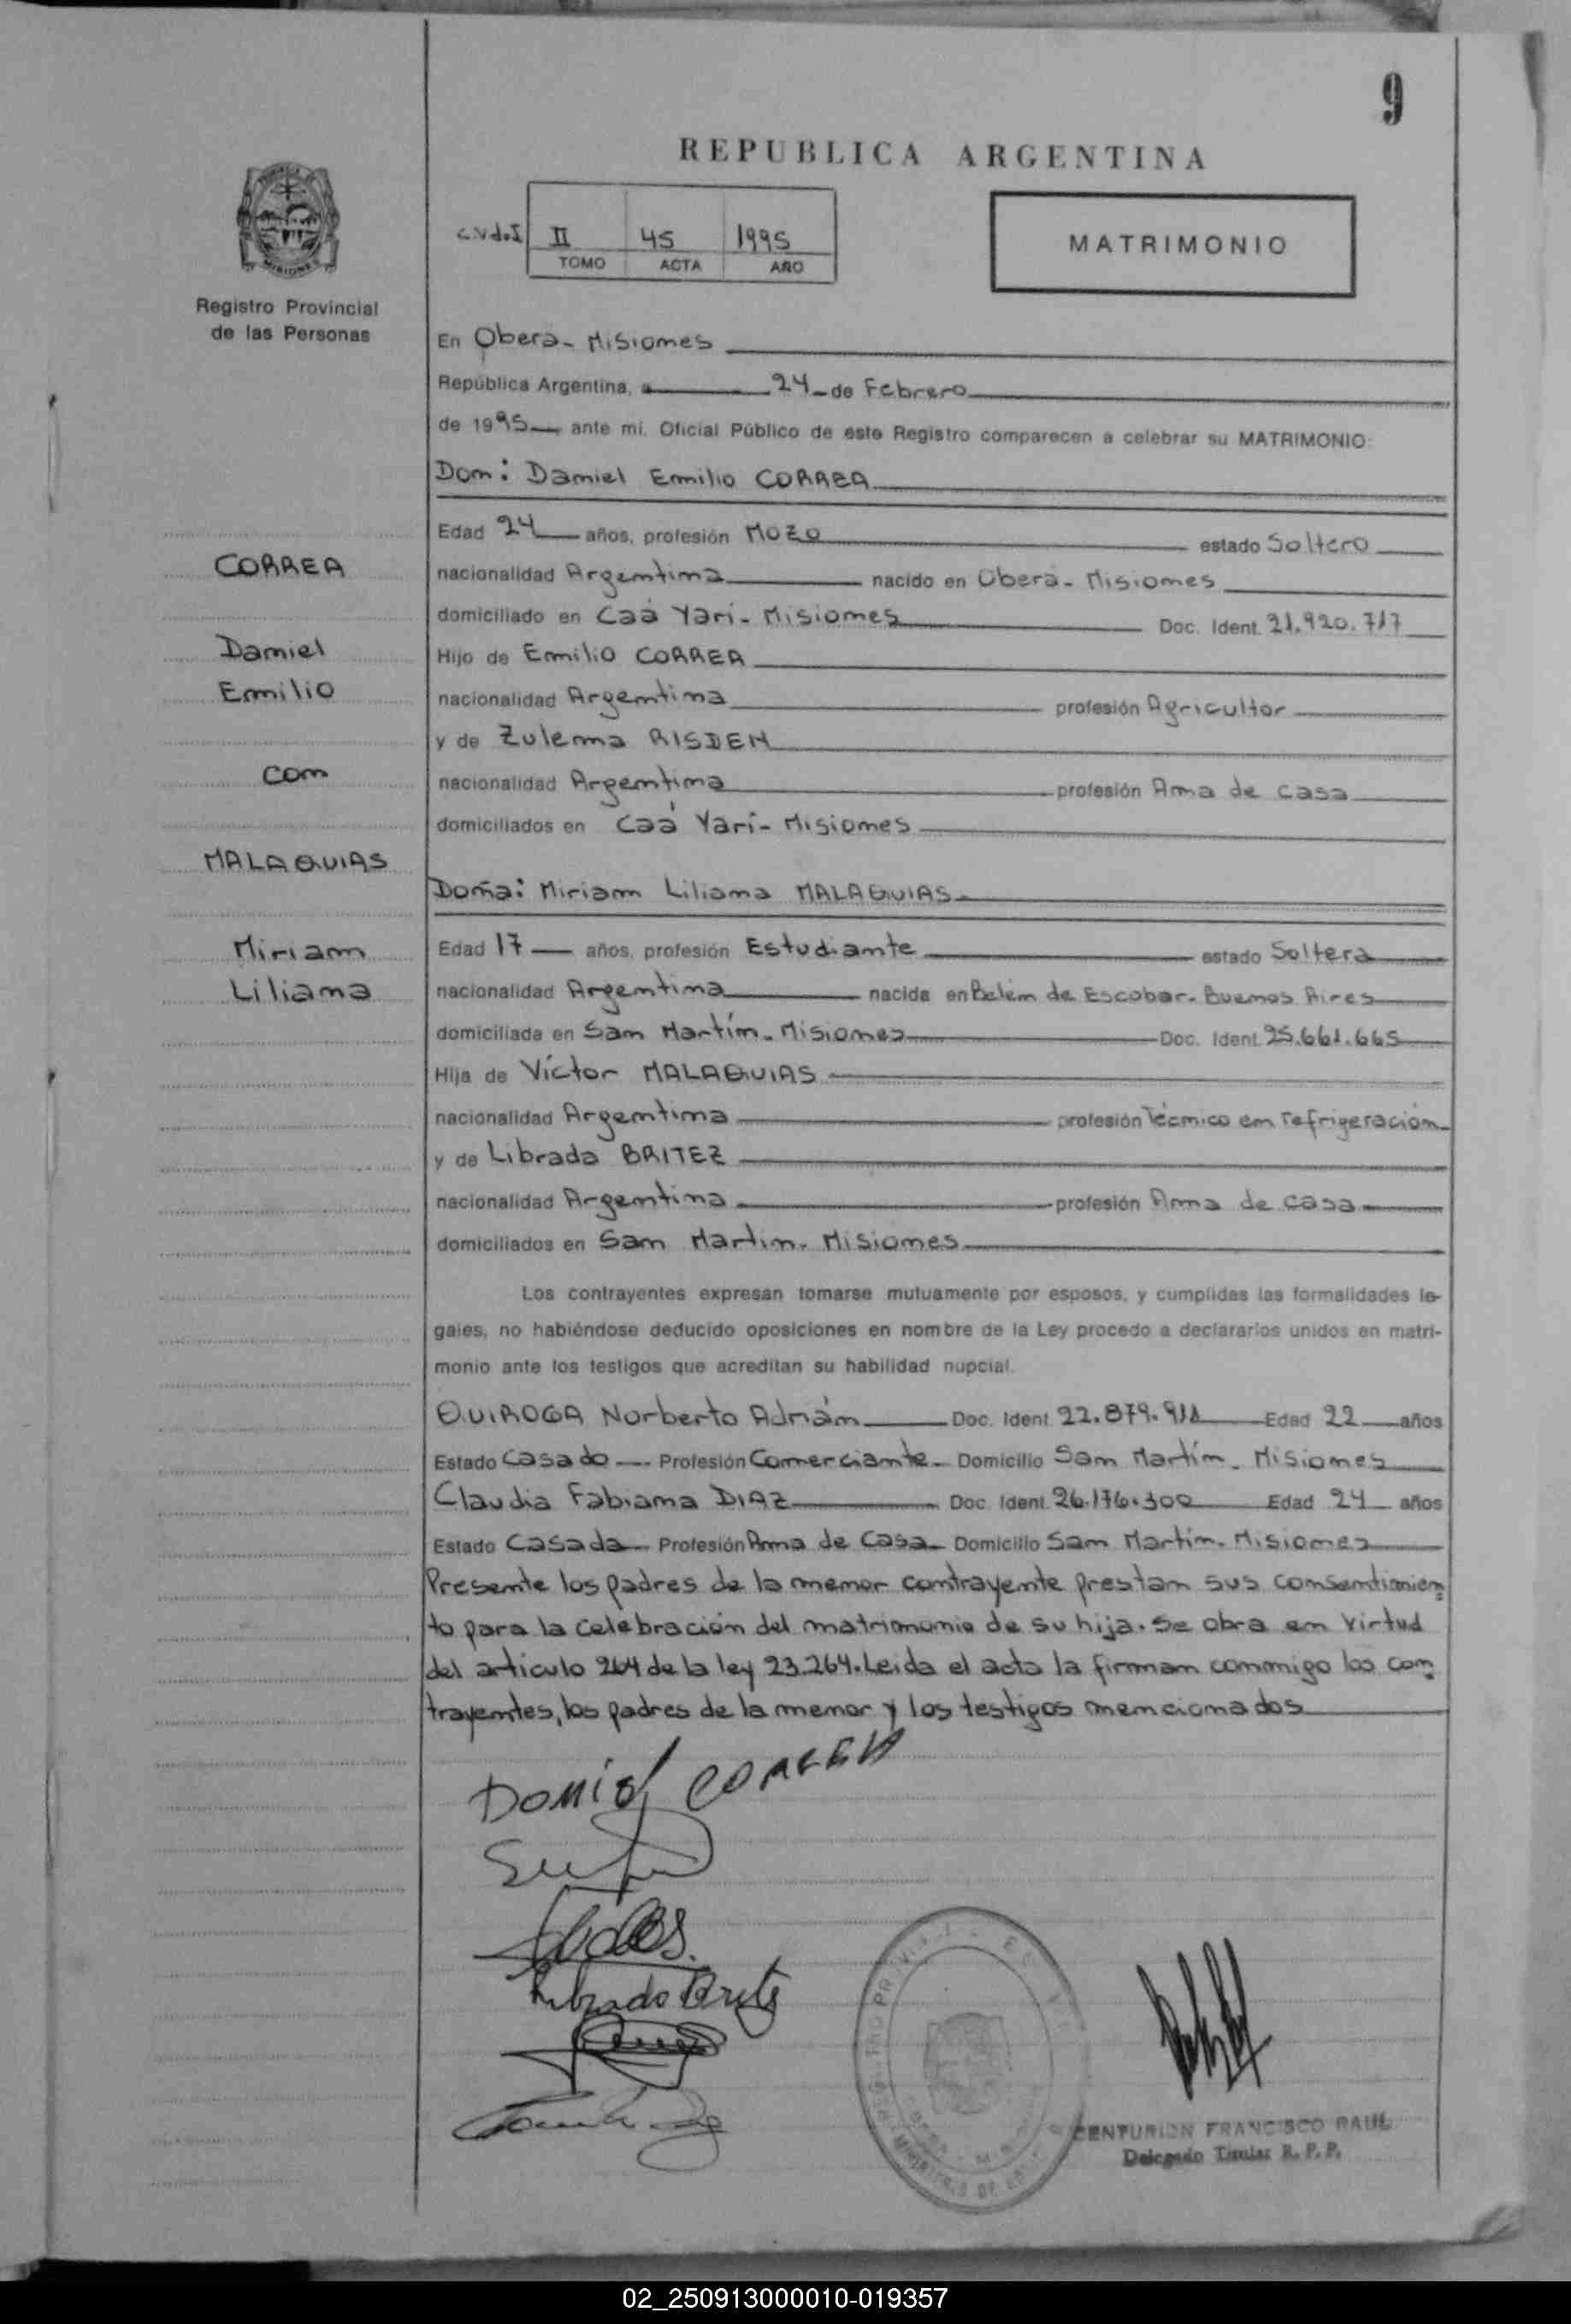 9
REPUBLICA ARGENTINA
II 45 1995
TOMO ACTA AÑO
MATRIMONIO
MISIONES
Registro Provincial
de las Personas
En Oberá - Misiones
República Argentina, a 24 de Febrero
de 1995 ante mi, Oficial Público de este Registro comparecen a celebrar su MATRIMONIO:
Don: Daniel Emilio CORREA
Edad 24 años, profesión Mozo estado Soltero
CORREA
nacionalidad Argentina nacido en Oberá - Misiones
domiciliado en Caá Yarí - Misiones Doc. Ident. 21.920.717
Damiel
Hijo de Emilio CORREA
Emilio
nacionalidad Argentina profesión Agricultor
y de Zulema RISDEN
con
nacionalidad Argentina profesión Ama de casa
domiciliados en Caá Yarí - Misiones
MALAQUIAS
Doña: Miriam Liliana MALAQUIAS
Miriam
Edad 17 años, profesión Estudiante estado Soltera
Liliana
nacionalidad Argentina nacida en Belén de Escobar - Buenos Aires
domiciliada en San Martín - Misiones Doc. Ident. 25.661.665
Hija de Víctor MALAQUIAS
nacionalidad Argentina profesión Técnico en refrigeración
y de Librada BRITEZ
nacionalidad Argentina profesión Ama de casa
domiciliados en San Martin - Misiones
Los contrayentes expresan tomarse mutuamente por esposos, y cumplidas las formalidades le-
gales, no habiéndose deducido oposiciones en nombre de la Ley procedo a declararlos unidos en matri-
monio ante los testigos que acreditan su habilidad nupcial.
QUIROGA Norberto Adrián Doc. Ident. 22.879.911 Edad 22 años
Estado Casado Profesión Comerciante Domicilio San Martín - Misiones
Claudia Fabiana DIAZ Doc. Ident. 26.176.300 Edad 24 años
Estado Casada Profesión Ama de Casa Domicilio San Martín - Misiones
Presente los padres de la menor contrayente prestan sus consentimien
to para la celebración del matrimonio de su hija. Se obra en virtud
del articulo 264 de la ley 23.264. Leida el acta la firman conmigo los con
trayentes, los padres de la menor y los testigos mencionados
Daniel CORREA
Librada Britez
CENTURION FRANCISCO RAUL
Delegado Titular R. P. P.
02_250913000010-019357